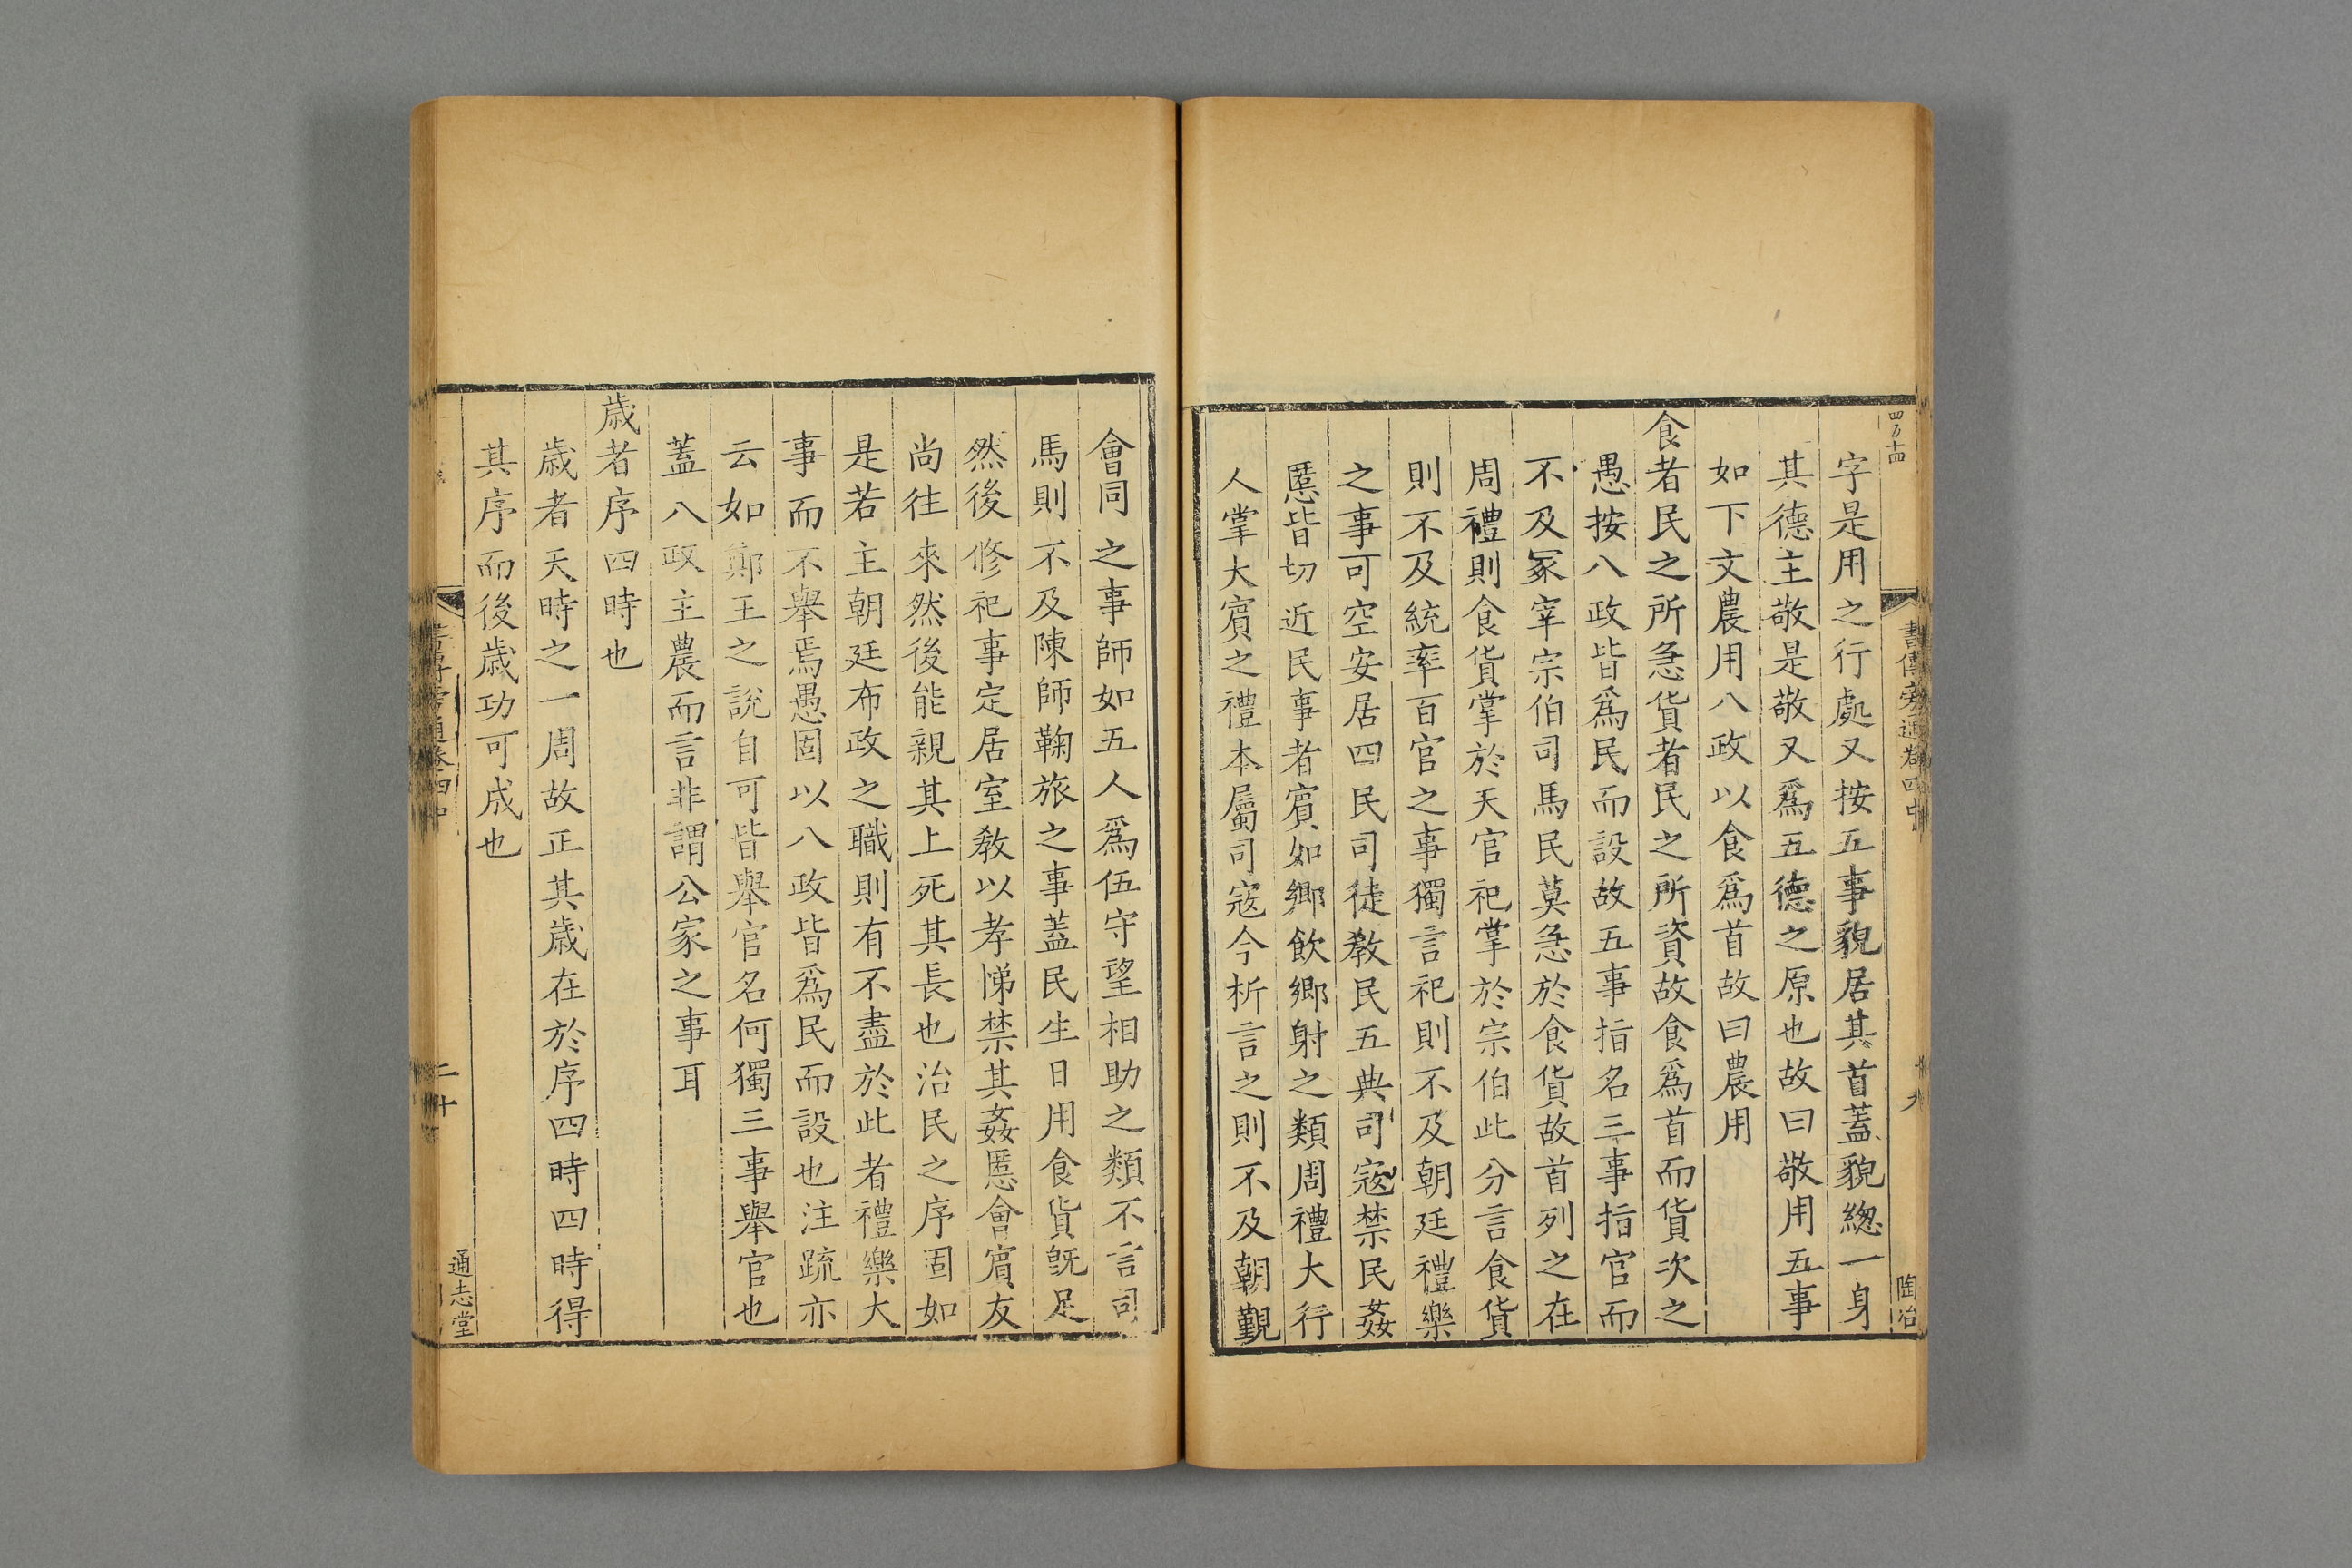 書傳旁通卷四中
十九
陶冶
字是用之行處又按五事貌居其首蓋貌總一身
其德主敬是敬又爲五德之原也故曰敬用五事
如下文農用八政以食爲首故曰農用
食者民之所急貨者民之所資故食爲首而貨次之
愚按八政皆爲民而設故五事指名三事指官而
不及冢宰宗伯司馬民莫急於食貨故首列之在
周禮則食貨掌於天官祀掌於宗伯此分言食貨
則不及統率百官之事獨言祀則不及朝廷禮樂
之事司空安居四民司徒敎民五典司寇禁民姦
慝皆切近民事者賓如鄉飲鄉射之類周禮大行
人掌大賓之禮本屬司寇今析言之則不及朝覲
會同之事師如五人爲伍守望相助之類不言司
馬則不及陳師鞠旅之事蓋民生日用食貨旣足
然後修祀事定居室敎以孝悌禁其姦慝會賓友
尚往來然後能親其上死其長也治民之序固如
是若主朝廷布政之職則有不盡於此者禮樂大
事而不舉焉愚固以八政皆爲民而設也注疏亦
云如鄭王之說自可皆舉官名何獨三事舉官也
蓋八政主農而言非謂公家之事耳
歲者序四時也
歲者天時之一周故正其歲在於序四時四時得
其序而後歲功可成也
二十
通志堂